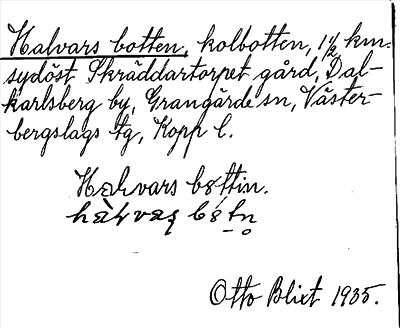 Halvars botten, kolbotten, 1½ km.
sydöst Skräddartorpet gård, Dal-
karlsberg by, Grangärde sn, Väster-
bergslags tg, Kopp l.
Halvars bottin.
Otto Blixt 1935.